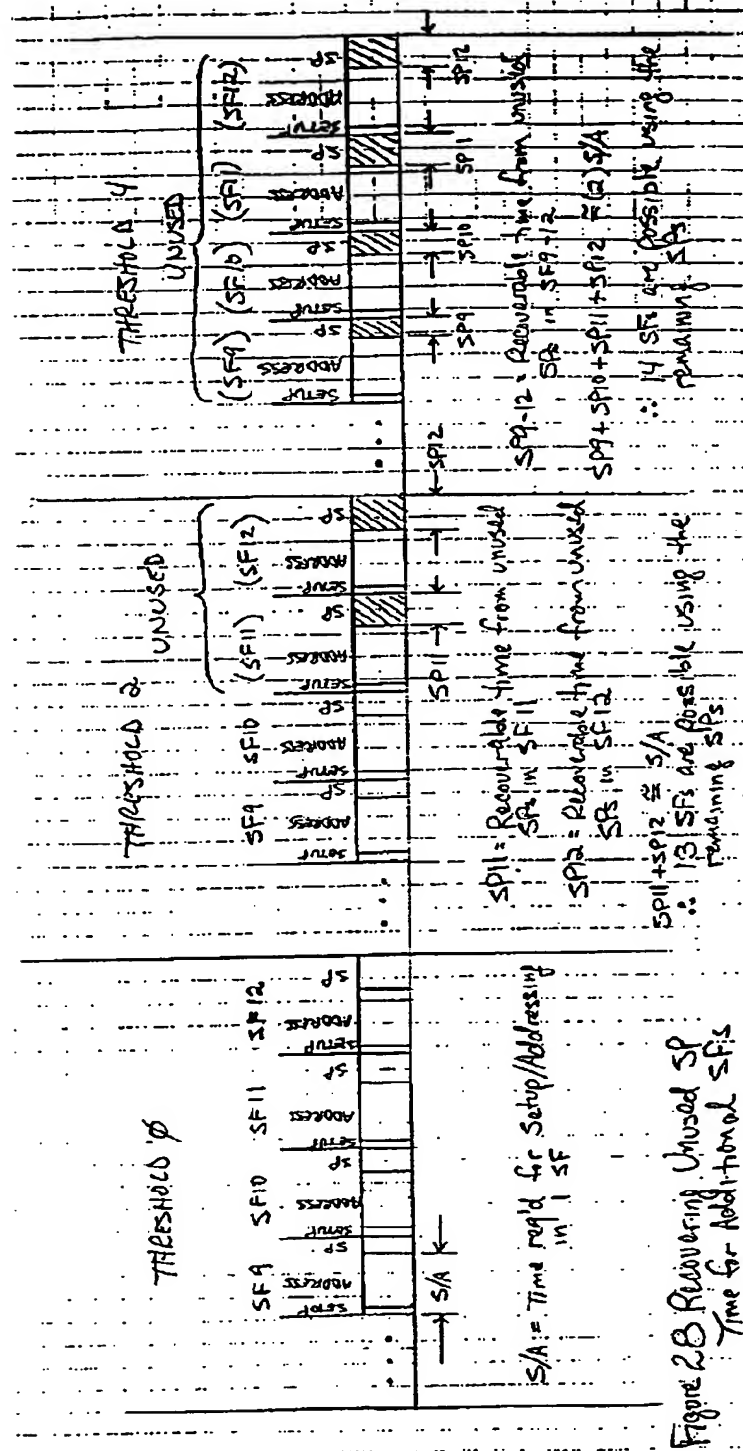 THRESHOLD Ø
SF9 SF10 SF11 SF12
SETUP ADDRESS SP SETUP ADDRESS SP SETUP ADDRESS SP SETUP ADDRESS SP
S/A
S/A = Time req'd for Setup/Addressing
in 1 SF
THRESHOLD 2
UNUSED
SF9 SF10 (SF11) (SF12)
SETUP ADDRESS SP SETUP ADDRESS SP SETUP ADDRESS SP SETUP ADDRESS SP
SP11 SP12
SP11 = Recoverable time from unused
SPs in SF11
SP12 = Recoverable time from unused
SPs in SF12
SP11 + SP12 ≅ S/A
∴ 13 SFs are possible using the
remaining SPs
THRESHOLD 4
UNUSED
(SF9) (SF10) (SF11) (SF12)
SETUP ADDRESS SP SETUP ADDRESS SP SETUP ADDRESS SP SETUP ADDRESS SP
SP9 SP10 SP11 SP12
SP9-12 = Recoverable time from unused
SPs in SF9-12
SP9 + SP10 + SP11 + SP12 ≅ (2) S/A
∴ 14 SFs are possible using the
remaining SPs
Figure 2B Recovering Unused SP
Time for Additional SFs